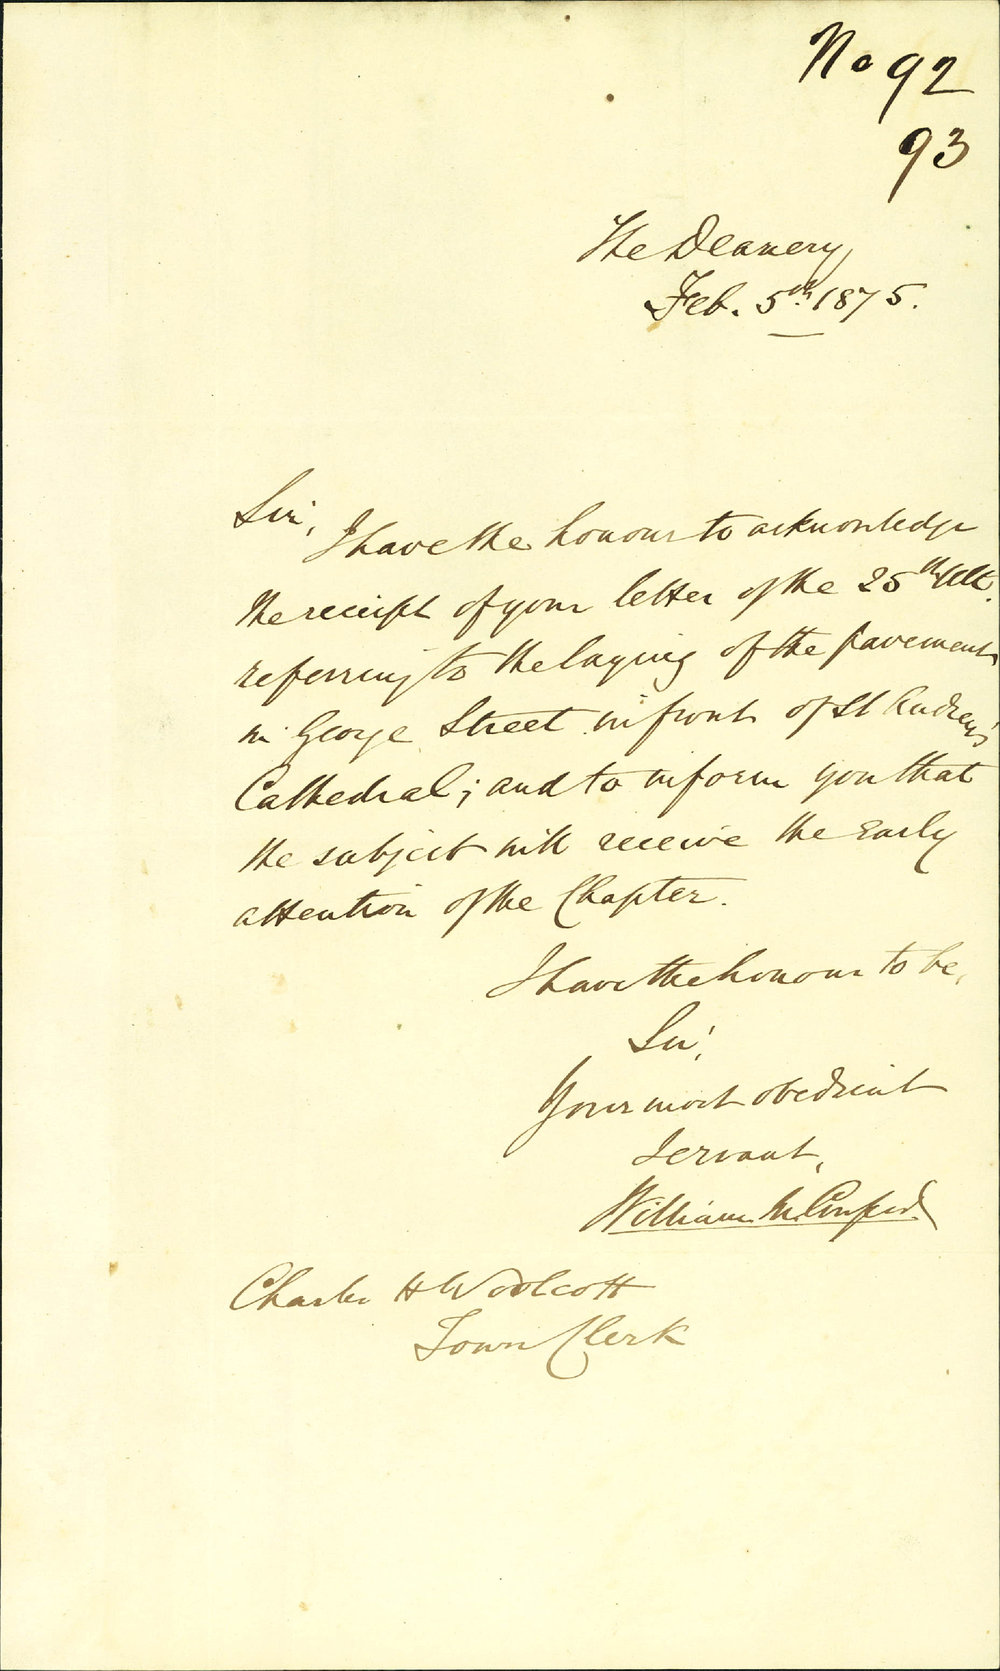 No 92
93
The Deanery
Feb. 5th. 1875.
Sir,
I have the honour to acknowledge
the receipt of your letter of the 25th Ult.
referring to the laying of the pavement
in George Street in front of St Andrew's
Cathedral; and to inform you that
the subject will receive the early
attention of the Chapter.
I have the honour to be,
Sir,
Your most obedient
Servant,
William M. Cowper
Charles H Woolcott
Town Clerk